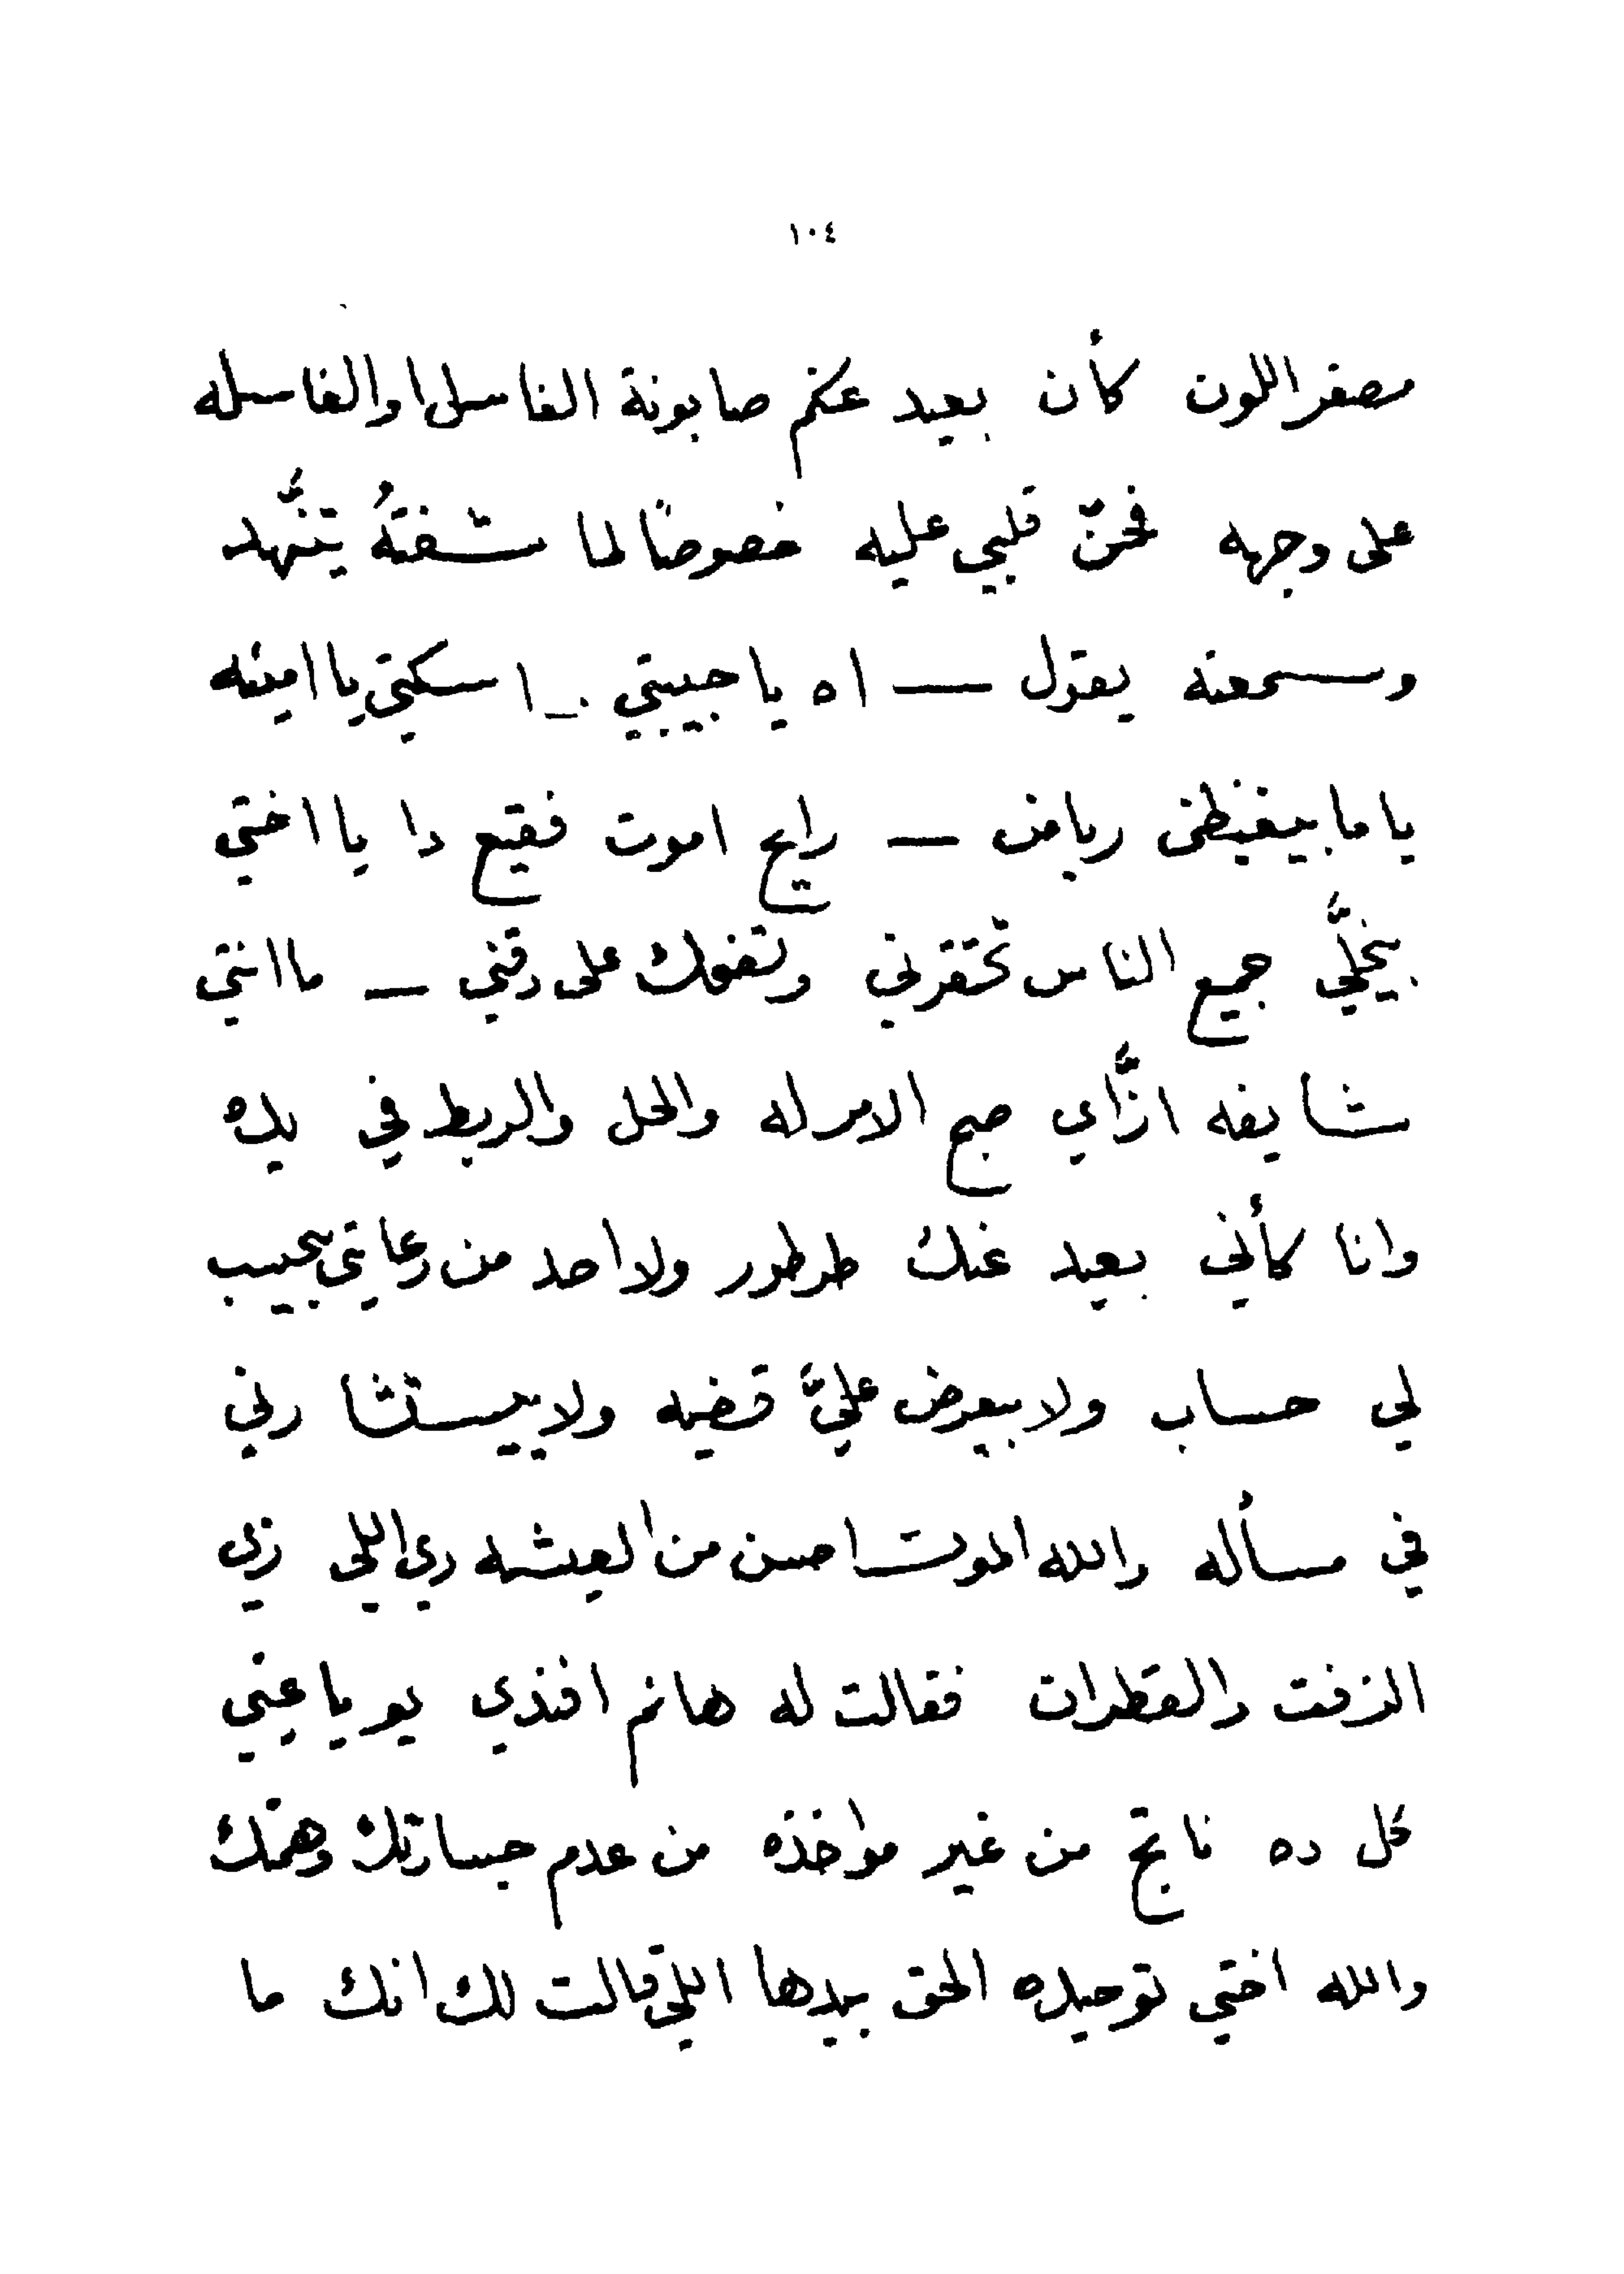 ١٠٤
مصفر اللون كأن بعيد عنكم صابونة الغاسل او الغاسله
على وجهه فحنّ قلبي عليه خصوصًا لما شفتهُ يتنهَّد
وسمعته يقول — اه يا حبيبتي — اسكتي يا امينه
ياما بيغيظنى رياض — رايح اموت فقيع دا يا اختي
بيخلَّي جميع الناس تحتقرني وتضحك على دقني — ما انتي
شايفه ازَّاي صبح الامر له والحل والربط في يده
وانا كأني بعيد عنك طرطور ولا احد من رعايتي بيحيب
لي حساب ولا بيعرض عليَّ قضيه ولا بيستشارني
في مسأله والله الموت احسن من العيشه دي اللي زي
الزفت والقطران فقالت له هانم افندي يو يا عيني
كل ده ناتج من غير مواخذه من عدم جسارتك وهمتك
والله اختي توحيده الحق بيدها اللي قالت لك انك ما